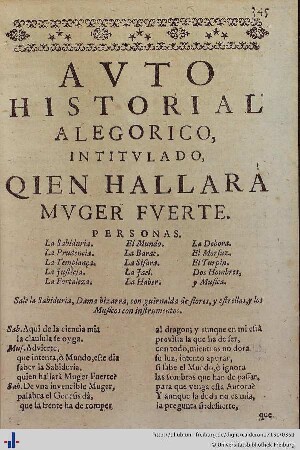 345
AVTO
HISTORIAL
ALEGORICO,
INTITVLADO,
QIEN HALLARÁ
MVGER FVERTE.
PERSONAS.
La Sabiduria. El Mundo. La Debora.
La Prudencia. La Barac. El Morfuz.
La Templança. La Sisara. El Turpin.
La Justicia. La Jael. Dos Hombres,
La Fortaleza. La Haber. y Musica.
Sale la Sabiduria, Dama bizarra, con guirnalda de flores, y estrellas, y los
Musicos con instrumentos.
Sab. Aqui de la ciencia mia
la clausula se oyga.
Mus. Advierte,
que intenta, ò Mundo, este dia
saber la Sabiduria,
quien hallarà Muger Fuerte?
Sab. De vna invencible Muger,
palabra el Genesis dà,
que la frente ha de romper
al dragon; y aunque en mi està
prevista la que ha de ser,
con todo,
su luz, intento apurar,
si sabe el Mundo, ò ignora
las sombras que han de passar,
para que venga essa Aurora?
Y aunque la de no es mia,
la pregunta
que